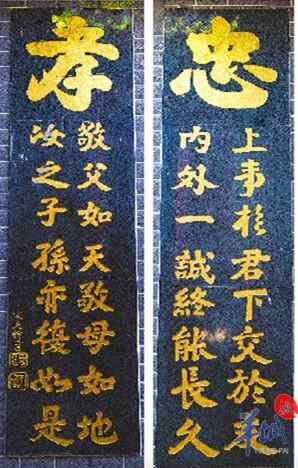 忠
上事於君下交於
内外一誠終能長久
孝
敬父如天敬母如地
汝之子孫亦復如是
羊城
派